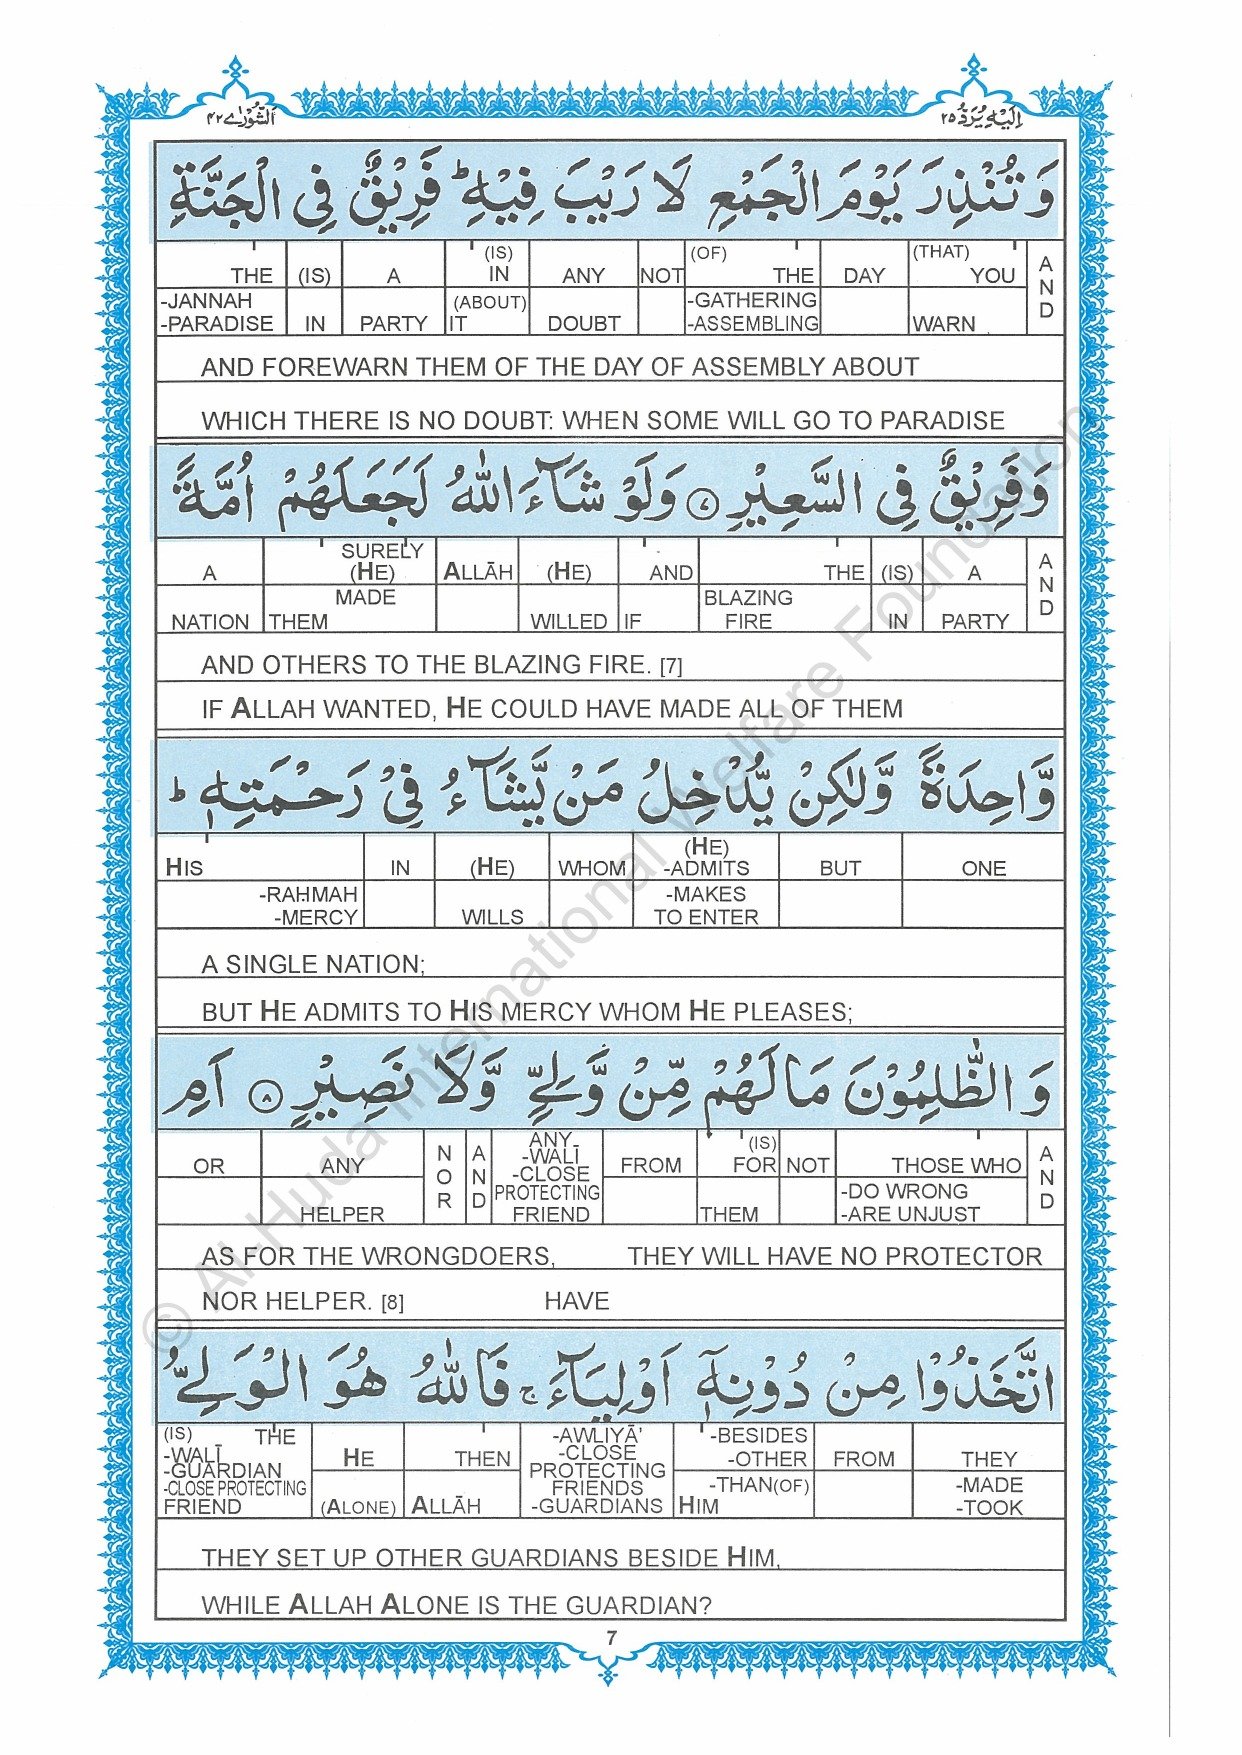 اِلَيْهِ يُرَدُّ ٢٥
اَلشُّوْرٰى ٤٢
وَ تُنْذِرَ يَوْمَ الْجَمْعِ لَا رَيْبَ فِيْهِ ؕ فَرِيْقٌ فِى الْجَنَّةِ
THE (IS) A (IS) IN ANY NOT (OF) THE DAY (THAT) YOU AND
-JANNAH -PARADISE IN PARTY (ABOUT) IT DOUBT -GATHERING -ASSEMBLING WARN
AND FOREWARN THEM OF THE DAY OF ASSEMBLY ABOUT
WHICH THERE IS NO DOUBT: WHEN SOME WILL GO TO PARADISE
وَ فَرِيْقٌ فِى السَّعِيْرِ ٧ وَلَوْ شَآءَ اللّٰهُ لَجَعَلَهُمْ اُمَّةً
A SURELY (HE) ALLĀH (HE) AND THE (IS) A AND
NATION MADE THEM WILLED IF BLAZING FIRE IN PARTY
AND OTHERS TO THE BLAZING FIRE. [7]
IF ALLAH WANTED, HE COULD HAVE MADE ALL OF THEM
وَّاحِدَةً وَّلٰكِنْ يُّدْخِلُ مَنْ يَّشَآءُ فِيْ رَحْمَتِهٖ ؕ
HIS IN (HE) WHOM (HE) -ADMITS BUT ONE
-RAḤMAH -MERCY WILLS -MAKES TO ENTER
A SINGLE NATION;
BUT HE ADMITS TO HIS MERCY WHOM HE PLEASES;
وَ الظّٰلِمُوْنَ مَا لَهُمْ مِّنْ وَّلِيٍّ وَّلَا نَصِيْرٍ ٨ اَمِ
OR ANY NOR AND ANY -WALĪ -CLOSE PROTECTING FRIEND FROM (IS) FOR NOT THOSE WHO AND
HELPER THEM -DO WRONG -ARE UNJUST
AS FOR THE WRONGDOERS, THEY WILL HAVE NO PROTECTOR
NOR HELPER. [8] HAVE
اتَّخَذُوْا مِنْ دُوْنِهٖٓ اَوْلِيَآءَ ج فَاللّٰهُ هُوَ الْوَلِيُّ
(IS) THE -WALĪ -GUARDIAN -CLOSE PROTECTING FRIEND HE THEN -AWLIYĀ' -CLOSE PROTECTING FRIENDS -GUARDIANS -BESIDES -OTHER FROM THEY
(ALONE) ALLĀH -THAN(OF) HIM -MADE -TOOK
THEY SET UP OTHER GUARDIANS BESIDE HIM,
WHILE ALLAH ALONE IS THE GUARDIAN?
7
© Al-Huda International Welfare Foundation